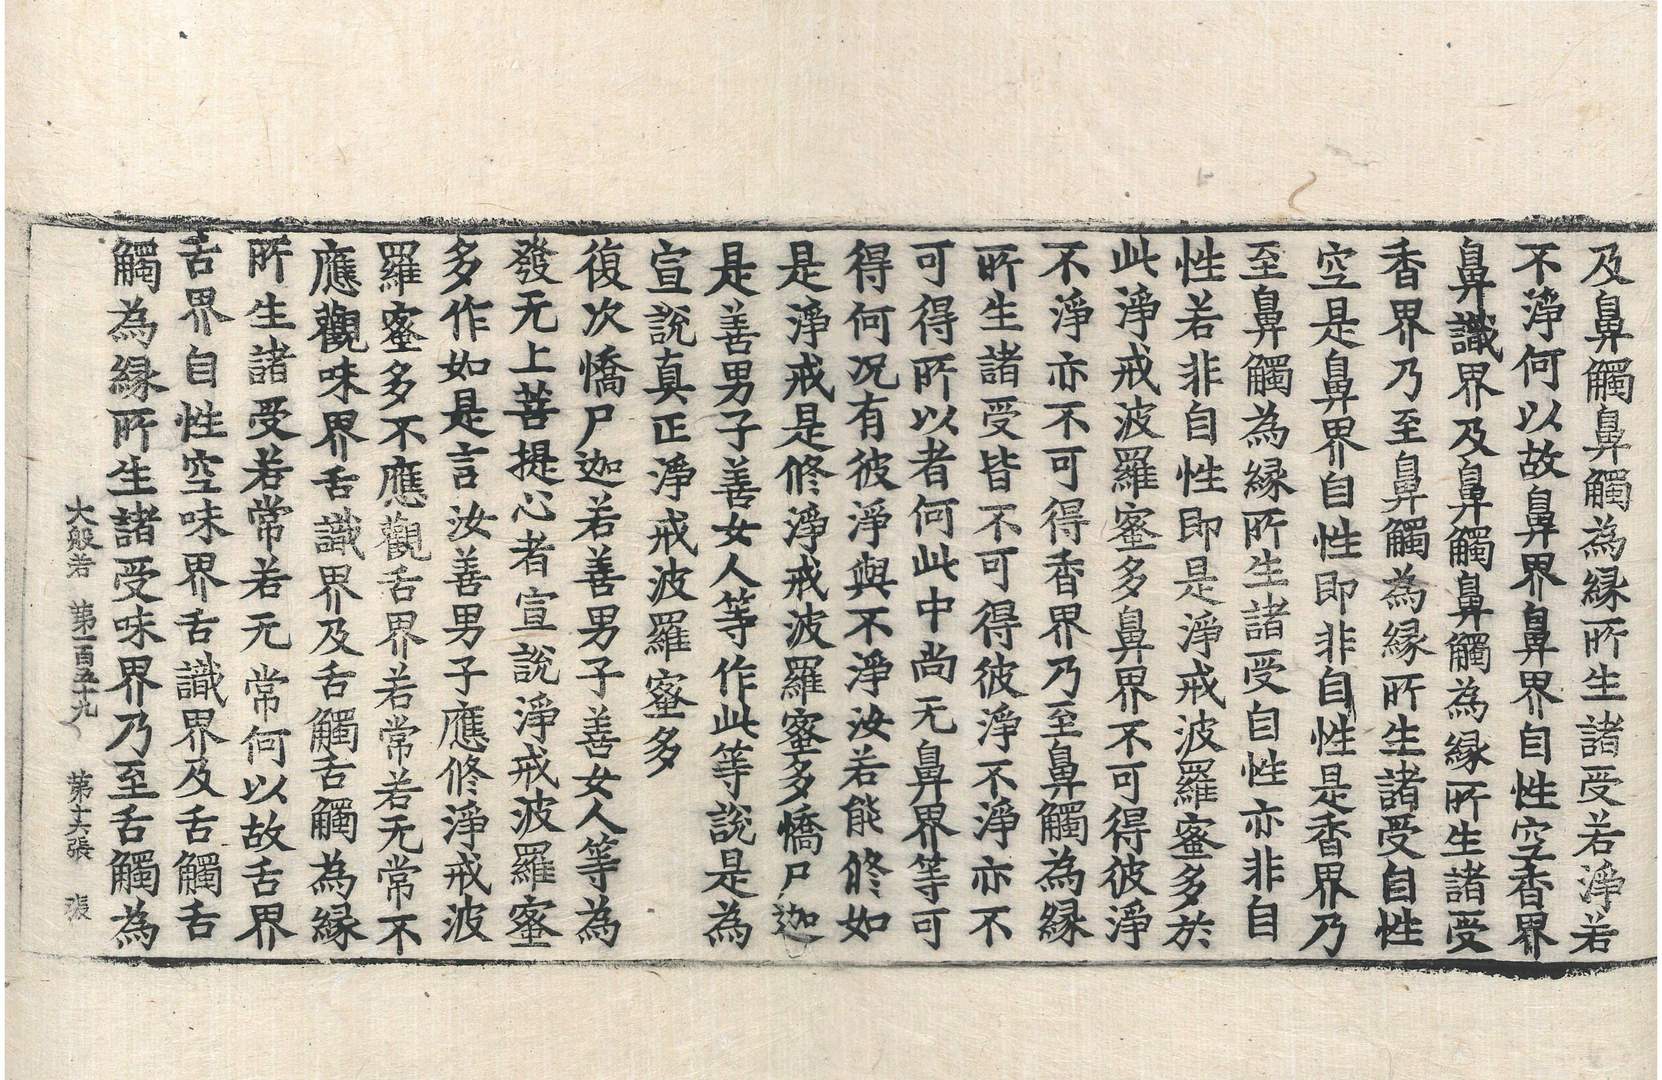 及鼻觸鼻觸為縁所生諸受若淨若
不淨何以故鼻界鼻界自性空香界
鼻識界及鼻觸鼻觸為縁所生諸受
香界乃至鼻觸為縁所生諸受自性
空是鼻界自性即非自性是香界乃
至鼻觸為縁所生諸受自性亦非自
性若非自性即是淨戒波羅蜜多於
此淨戒波羅蜜多鼻界不可得彼淨
不淨亦不可得香界乃至鼻觸為縁
所生諸受皆不可得彼淨不淨亦不
可得所以者何此中尚无鼻界等可
得何况有彼淨與不淨汝若能修如
是淨戒是修淨戒波羅蜜多憍尸迦
是善男子善女人等作此等說是為
宣說真正淨戒波羅蜜多
復次憍尸迦若善男子善女人等為
發无上菩提心者宣說淨戒波羅蜜
多作如是言汝善男子應修淨戒波
羅蜜多不應觀舌界若常若无常不
應觀味界舌識界及舌觸舌觸為縁
所生諸受若常若无常何以故舌界
舌界自性空味界舌識界及舌觸舌
觸為縁所生諸受味界乃至舌觸為
大般若 第一百五十九 第十六張 張